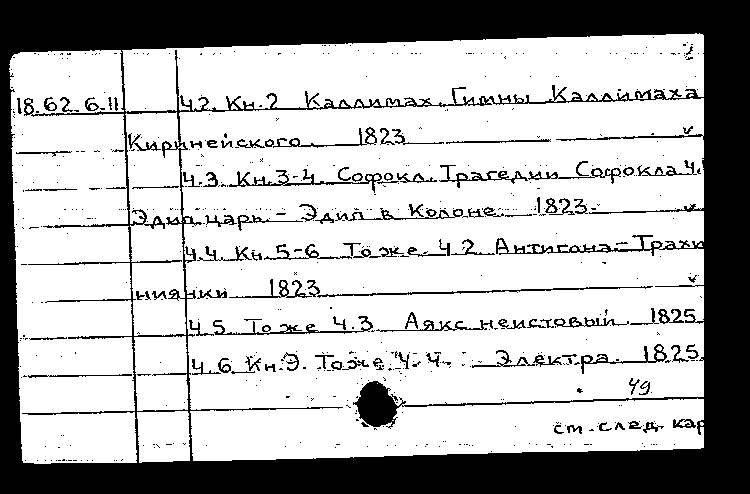 2
18.62.6.11 Ч.2. Кн.2 Каллимах. Гимны Каллимаха
Киринейского. 1823 v
Ч.3. Кн.3-4. Софокл. Трагедии Софокла Ч.1
Эдип царь - Эдип в Колоне. 1823. v
Ч.4. Кн.5-6 То же. Ч.2. Антигона - Трахи
ниянки 1823 v
Ч.5. То же Ч.3 Аякс неистовый. 1825
Ч.6. Кн.9. То же Ч.4. Электра. 1825.
49
см. след. кар